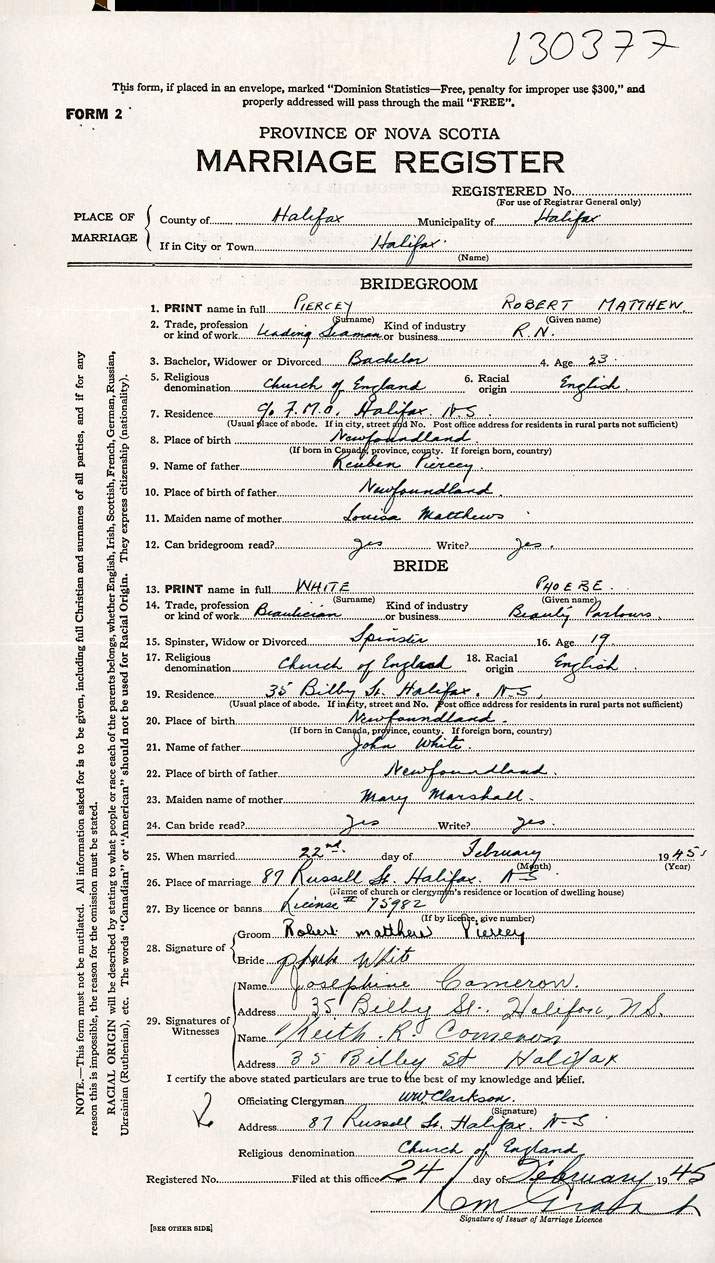 130377
This form, if placed in an envelope, marked "Dominion Statistics—Free, penalty for improper use $300," and
properly addressed will pass through the mail "FREE".
FORM 2
PROVINCE OF NOVA SCOTIA
MARRIAGE REGISTER
REGISTERED No.
(For use of Registrar General only)
PLACE OF MARRIAGE
County of Halifax Municipality of Halifax
If in City or Town Halifax
(Name)
BRIDEGROOM
1. PRINT name in full PIERCEY ROBERT MATTHEW
(Surname) (Given name)
2. Trade, profession or kind of work Leading Seaman Kind of industry or business R.N.
3. Bachelor, Widower or Divorced Bachelor 4. Age 23
5. Religious denomination Church of England 6. Racial origin English
7. Residence c/o F.M.O. Halifax N-S
(Usual place of abode. If in city, street and No. Post office address for residents in rural parts not sufficient)
8. Place of birth Newfoundland
(If born in Canada, province, county. If foreign born, country)
9. Name of father Reuben Piercey
10. Place of birth of father Newfoundland
11. Maiden name of mother Louisa Matthews
12. Can bridegroom read? yes Write? yes.
BRIDE
13. PRINT name in full WHITE PHOEBE
(Surname) (Given name)
14. Trade, profession or kind of work Beautician Kind of industry or business Beauty Parlours
15. Spinster, Widow or Divorced Spinster 16. Age 19.
17. Religious denomination Church of England 18. Racial origin English
19. Residence 35 Bilby St. Halifax. N-S
(Usual place of abode. If in city, street and No. Post office address for residents in rural parts not sufficient)
20. Place of birth Newfoundland.
(If born in Canada, province, county. If foreign born, country)
21. Name of father John White
22. Place of birth of father Newfoundland.
23. Maiden name of mother Mary Marshall.
24. Can bride read? yes Write? yes.
25. When married 22nd. day of February 1945
(Month) (Year)
26. Place of marriage 87 Russell St. Halifax. N-S
(Name of church or clergymen's residence or location of dwelling house)
27. By licence or banns License # 75982
(If by licence, give number)
28. Signature of
Groom Robert matthew Piercey
Bride White
29. Signatures of Witnesses
Name Josephine Cameron.
Address 35 Bilby St. Halifax, N.S.
Name Keith R. Cameron
Address 35 Bilby St Halifax
I certify the above stated particulars are true to the best of my knowledge and belief.
Officiating Clergyman WW Clarkson.
(Signature)
Address 87 Russell St. Halifax. N-S
Religious denomination Church of England
Registered No. Filed at this office 24 day of February 1945
Signature of Issuer of Marriage Licence
[SEE OTHER SIDE]
NOTE.—This form must not be mutilated. All information asked for is to be given, including full Christian and surnames of all parties, and if for any
reason this is impossible, the reason for the omission must be stated.
RACIAL ORIGIN will be described by stating to what people or race each of the parents belongs, whether English, Irish, Scottish, French, German, Russian,
Ukrainian (Ruthenian), etc. The words "Canadian" or "American" should not be used for Racial Origin. They express citizenship (nationality).